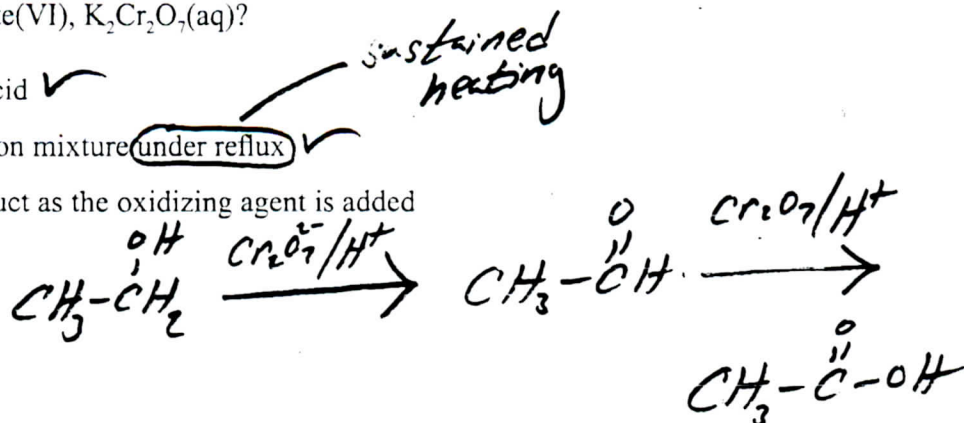 te(VI), K₂Cr₂O₇(aq)?
sustained
heating
cid ✓
on mixture under reflux ✓
uct as the oxidizing agent is added
OH
CH₃-CH₂
Cr₂O₇²⁻/H⁺
O
CH₃-CH
Cr₂O₇/H⁺
O
CH₃-C-OH